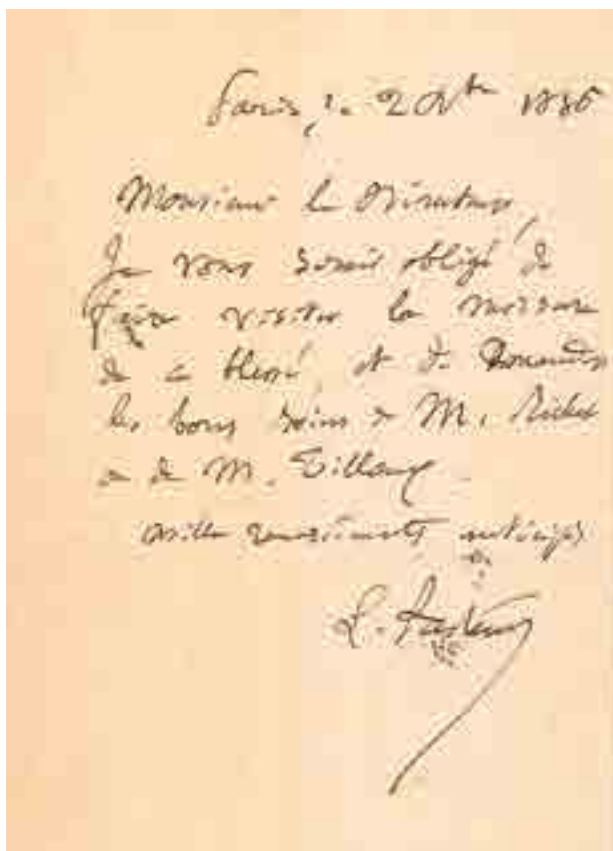 Paris, le 2 Xbre 1886
Monsieur le Directeur,
Je vous serais obligé de
faire visiter la morsure
de ce blessé, et de demander
les bons soins de M. Richet
ou de M. Tillaux
Mille remerciements anticipés
L. Pasteur